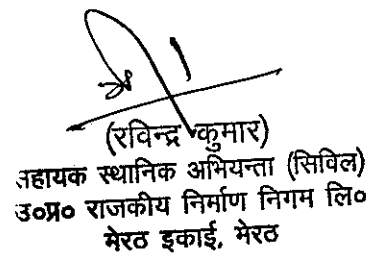 (रविन्द्र कुमार)
सहायक स्थानिक अभियन्ता (सिविल)
उ०प्र० राजकीय निर्माण निगम लि०
मेरठ इकाई, मेरठ